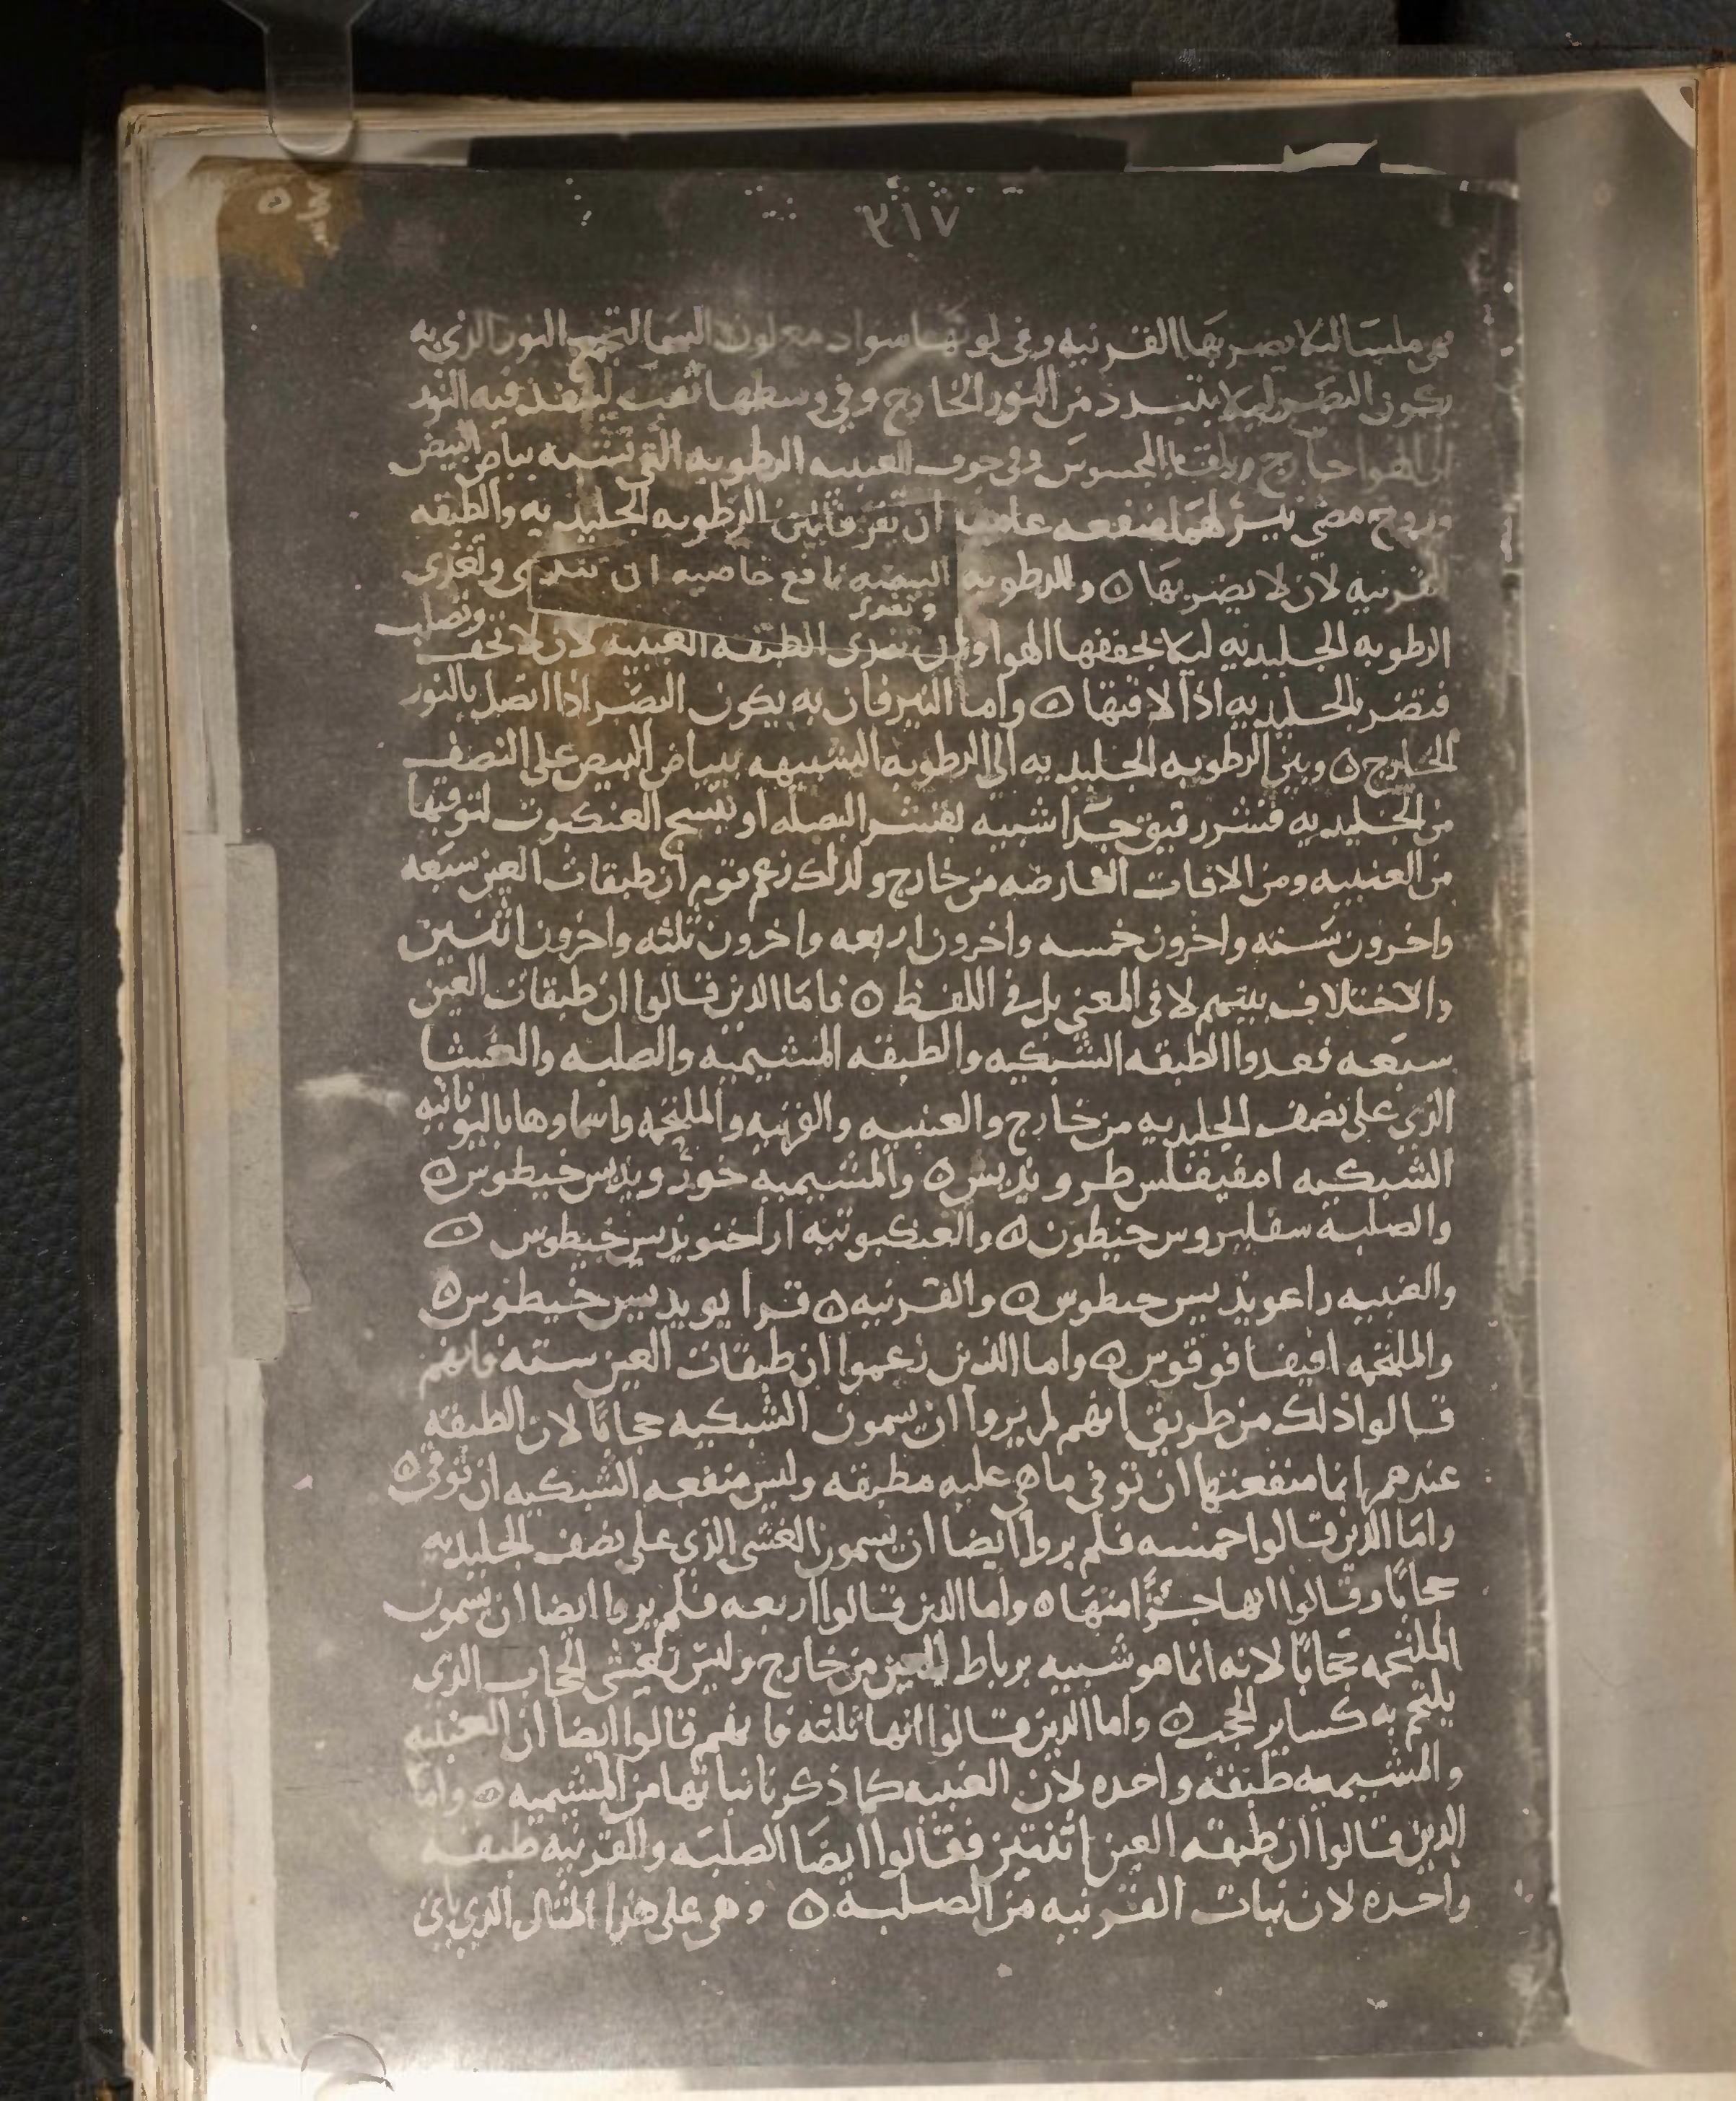 ٥٤
٣١٧
هي ملسا ليلا يضر بها القرنيه وفي لونها سواد مع لون السما لتجمع النور الذي به
يكون البصر ليلا يتبدد من النور الخارج وفي وسطها ثقب لينفذ فيه النور
الى الهوا خارج ويلقا المحسوس وفي جوف العنبيه الرطوبه التي تشبه بياض البيض
وروح مضي نير لهما منفعه عامه ان تفرقا بين الرطوبه الجليديه والطبقه
القرنيه لان لا يضر بها ٥ وللرطوبه البيضيه نافع خاصيه ان تندي وتغذي
الرطوبه الجليديه ليلا يجففها الهوا وان تندى الطبقه العنبيه لان لا تجف
وتصلب
فتضر بالجليديه اذا لاقتها ٥ واما النير فان به يكون البصر اذا اتصل بالنور
الخارج ٥ وبين الرطوبه الجليديه الى الرطوبه الشبيهه ببياض البيض على النصف
من الجليديه قشر رقيق جدا شبيه بقشر البصله او بنسج العنكبوت لتوقيها
من العنبيه ومن الافات العارضه من خارج ولذلك زعم قوم ان طبقات العين سبعه
واخرون سته واخرون خمسه واخرون اربعه واخرون ثلثه واخرون اثنين
والاختلاف بينهم لا في المعنى بل في اللفظ ٥ فاما الذين قالوا ان طبقات العين
سبعه فعدوا الطبقه الشبكيه والطبقه المشيميه والصلبه والغشا
الذي على نصف الجليديه من خارج والعنبيه والقرنيه والملتحمه واسماوها باليونانيه
الشبكيه امفيفلسطرويذيس ٥ والمشيميه خورويذيس خيطوس ٥
والصلبة سقليروس خيطون ٥ والعنكبوتيه اراخنويذيس خيطوس ٥
والعنبيه راعويذيس خيطوس ٥ والقرنيه ٥ قرايويذيس خيطوس ٥
والملتحمه افيفافوقوس ٥ واما الذين زعموا ان طبقات العين سته فانهم
قالوا ذلك من طريق انهم لم يروا ان يسمون الشبكيه حجابًا لان الطبقه
عندهم انما منفعتها ان توقى ما هي عليه مطبقه وليس منفعه الشبكيه ان توقى ٥
واما الذين قالوا خمسه فلم يروا ايضا ان يسمون الغشى الذي على نصف الجليديه
حجابًا وقالوا انها جزًا منها ٥ واما الذين قالوا اربعه فلم يروا ايضا ان يسمون
الملتحمه حجابًا لانه انما هو شبيه برباط للعين من خارج وليس تغشى الحجاب الذي
يلتحم به كساير الحجب ٥ واما الذين قالوا انها ثلثه فانهم قالوا ايضا ان العنبيه
والمشيميه طبقه واحده لان العنبيه كما ذكرنا نباتها من المشيميه ٥ واما
الذين قالوا ان طبقه العين اثنتين فقالوا ايضا الصلبه والقرنيه طبقه
واحده لان نبات القرنيه من الصلبة ٥ وهي على هذا المثال الذي ياتي